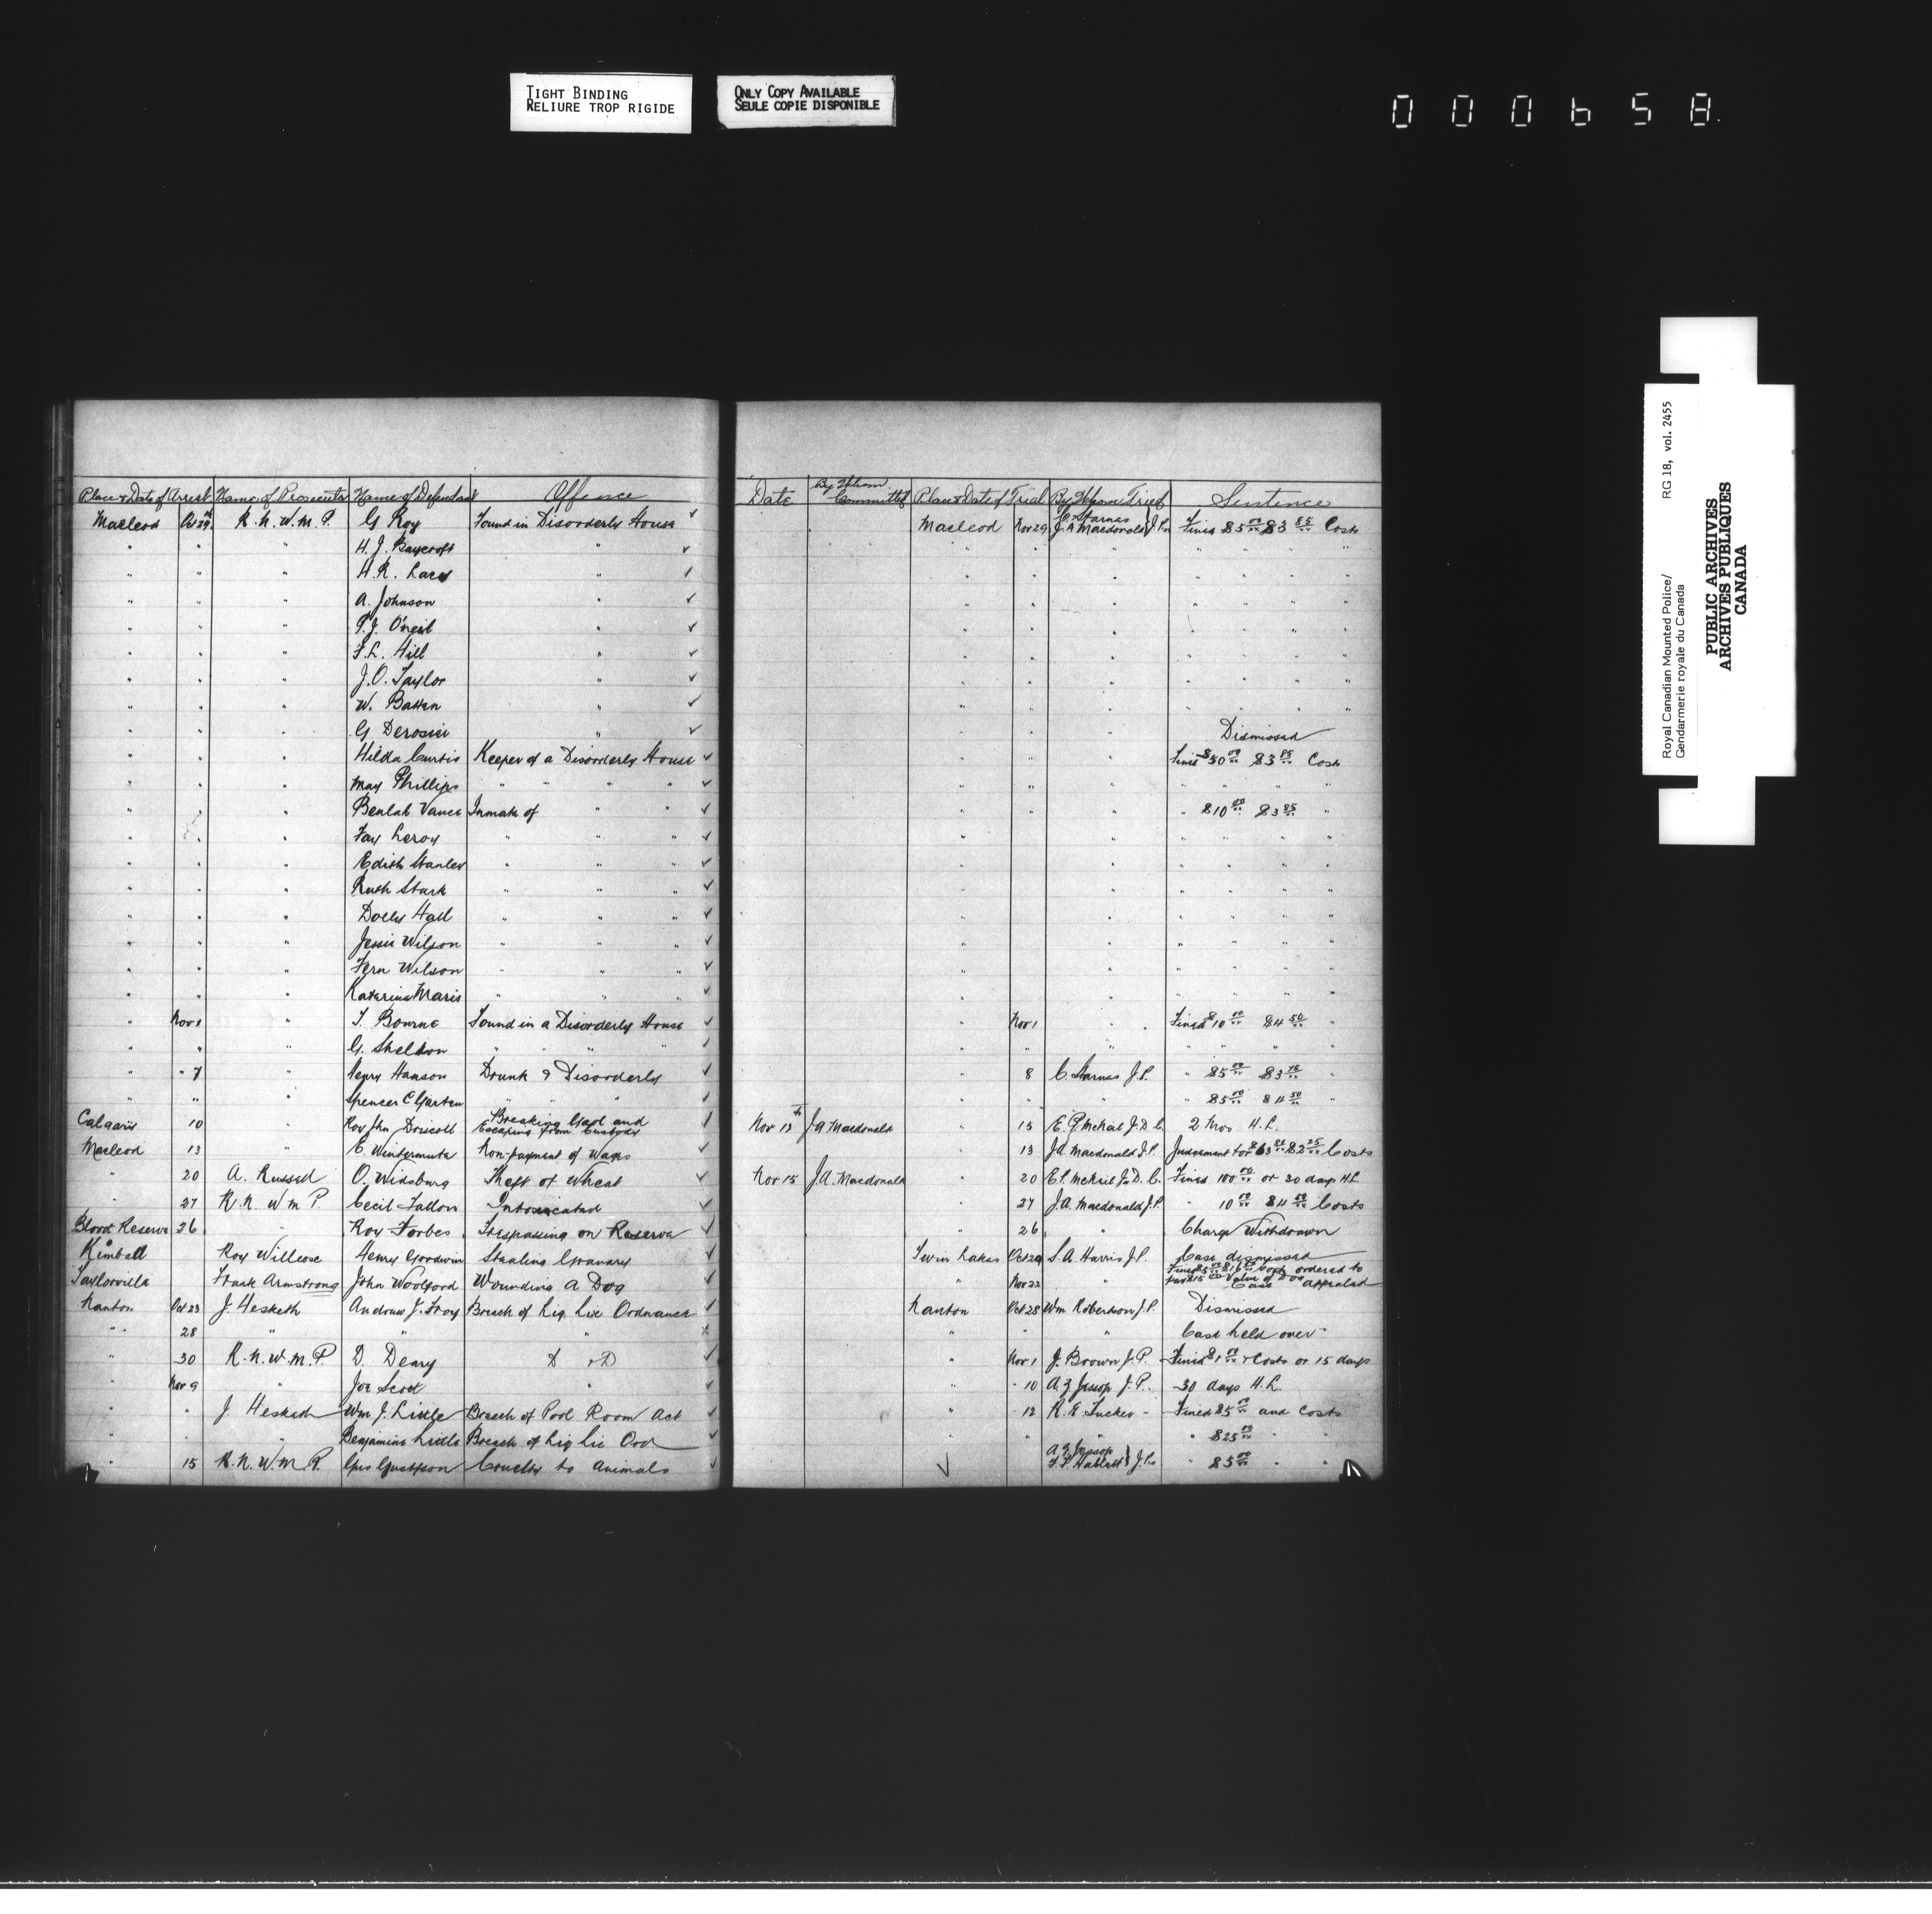 TIGHT BINDING
RELIURE TROP RIGIDE
ONLY COPY AVAILABLE
SEULE COPIE DISPONIBLE
000658
Royal Canadian Mounted Police/ RG 18, vol. 2455
Gendarmerie royale du Canada
PUBLIC ARCHIVES
ARCHIVES PUBLIQUES
CANADA
Place & Date of Arrest Name of Prosecutor Name of Defendant Offence Date By Whom Committed Place & Date of Trial By Whom Tried Sentence
Macleod Oct 29th R.N.W.M.P. G Roy Found in Disorderly House ✓ Macleod Nov 29 C. Starnes J.A Macdonald } J.Ps Fined $5 00 $3 85 Costs
" " " H. J. Baycroft " ✓ " " " " " " "
" " " H. R. " ✓ " " " " " " "
" " " A. Johnson " ✓ " " " " " " "
" " " P. J. O'neil " ✓ " " " " " " "
" " " F. L. Hill " ✓ " " " " " " "
" " " J. O. Taylor " ✓ " " " " " " "
" " " W. Batten " ✓ " " " " " " "
" " " G Derosier " ✓ " " " Dismissed
" " " Hilda Curtis Keeper of a Disorderly House ✓ " " " Fined $50 00 $3 85 Costs
" " " May Phillips " " " ✓ " " " " " " "
" " " Beulah Vance Inmate of " " ✓ " " " " $10 00 $3 85 "
" " " Fay Leroy " " " ✓ " " " " " " "
" " " Edith Stanley " " " ✓ " " " " " " "
" " " Ruth Stark " " " ✓ " " " " " " "
" " " Dolly Hall " " " ✓ " " " " " " "
" " " Jessie Wilson " " " ✓ " " " " " " "
" " " Fern Wilson " " " ✓ " " " " " " "
" " " Katerina Maris " " " ✓ " " " " " " "
" Nov 1 " T. Bourne Found in a Disorderly House ✓ " Nov 1 " " Fined $10 00 $4 50 "
" " " G. Sheldon " " " " ✓ " " " " " " "
" " 7 " Henry Hanson Drunk & Disorderly ✓ " 8 C. Starnes J.P. " $5 00 $3 "
" " " Spencer C Garten " " " ✓ " " " " $5 00 $4 50 "
Calgary 10 " Roy Jhn Driscoll Breaking Gaol and Escaping from Custody ✓ Nov 12th J.A Macdonald " 15 E. P. McNeil J.D.C. 2 Mos H.L.
Macleod 13 " C. Wintermute Non-payment of Wages ✓ " 13 J.A. Macdonald J.P. Judgement for $2 25 Costs
" 20 A. Russell O. Widsburg Theft of Wheat ✓ Nov 15 J.A. Macdonald " 20 E.P. McNeil J.D.C. Fined 100 00 or 30 days H.L.
" 27 R.N.W.M.P. Cecil Fallon Intoxicated ✓ " 27 J.A. Macdonald J.P. " 10 00 $4 50 Costs
Blood Reserve 26 " Roy Forbes Trespassing on Reserve ✓ " 26 " Charge Withdrawn
Kimball Roy Willcose Henry Goodwin Stealing Granary ✓ Twin Lakes Oct 29 S. A. Harris J.P. Case dismissed
Taylorville Frank Armstrong John Woolford Wounding a Dog ✓ " Nov 22 " Fined $5 00 Costs ordered to pay $15 00 Value of Dog Case appealed
Nanton Oct 23 J. Hesketh Andrew J. Froy Breach of Liq Lic Ordnance ✓ Nanton Oct 28 Wm Robertson J.P. Dismissed
" " 28 " " " x " " " Case held over
" 30 R.N.W.M.P. D. Deary D & D ✓ " Nov 1 J. Brown J.P. Fined $1 00 & Costs or 15 days
" Nov 9 " Joe Scott " ✓ " " 10 A. Z Jessop J.P. 30 days H.L.
" " J. Hesketh Wm J. Little Breach of Pool Room Act ✓ " " 12 R. E Tucker " Fined $5 00 and Costs
" " " Benjamine Little Breach of Liq Lic Ord ✓ " " " " $25 00 " "
" 15 R.N.W.M.P. Gus Gustfson Cruelty to Animals ✓ ✓ A. Z Jessop F. P. } J.Ps " $5 00 " "